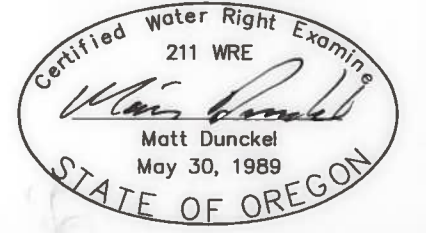 Certified Water Right Examine
211 WRE
Matt Dunckel
May 30, 1989
STATE OF OREGON